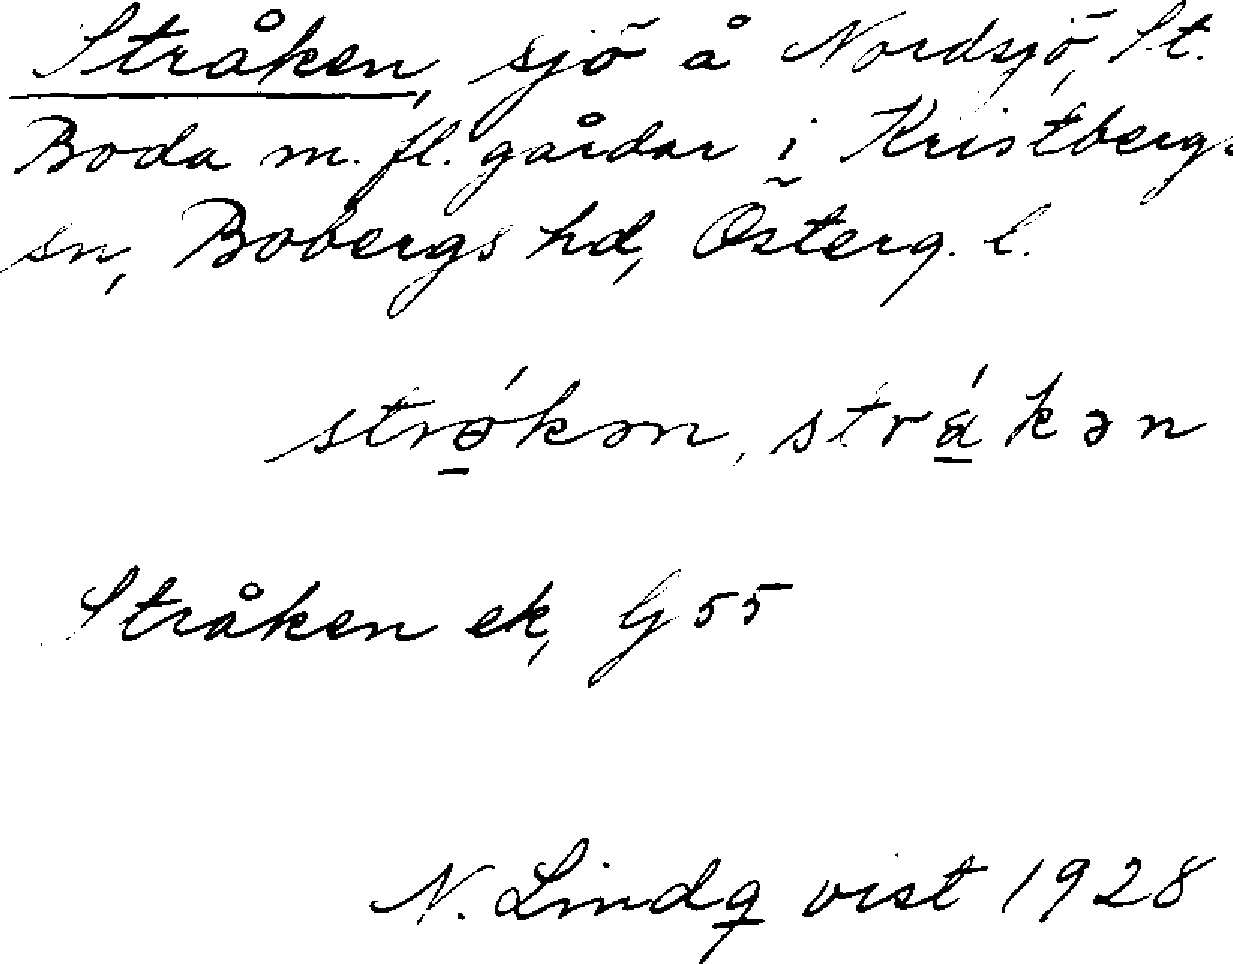 Stråken, sjö å Nordsjö, St.
Boda m. fl. gårdar i Kristbergs
sn, Bobergs hd, Österg. l.
strǿkən, strákən
Stråken ek, G 55
N. Lindqvist 1928